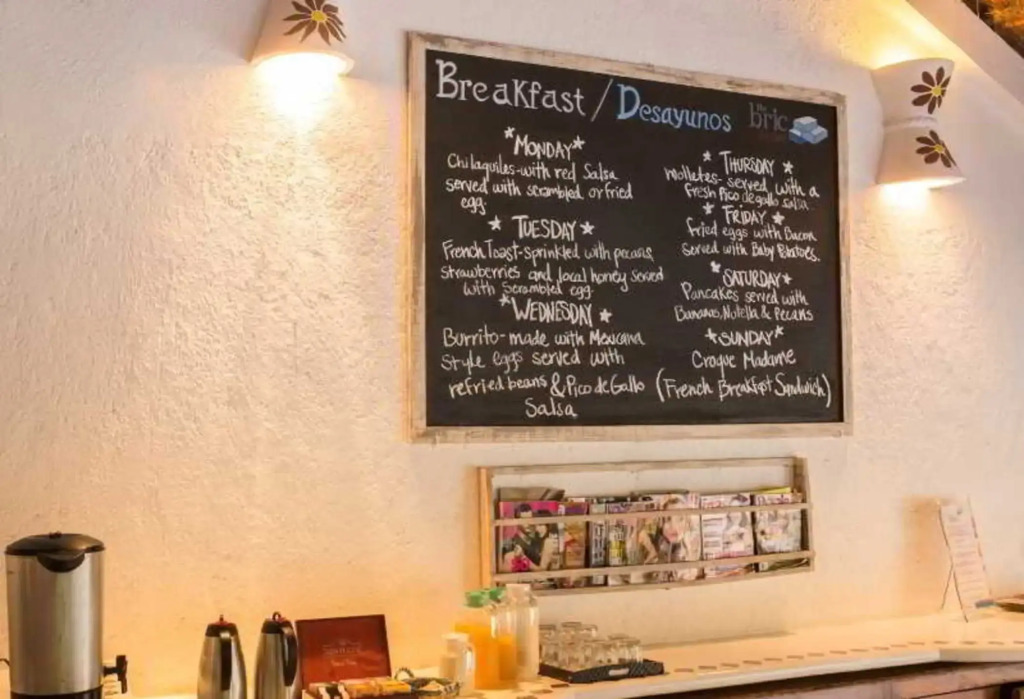 Breakfast / Desayunos
the bric
*MONDAY*
Chilaquiles-with red Salsa
served with scrambled or fried
egg.
* TUESDAY *
French Toast-sprinkled with pecans,
strawberries and local honey served
with scrambled egg.
*WEDNESDAY *
Burrito-made with Mexicana
Style eggs served with
refried beans & Pico de Gallo
Salsa
* THURSDAY *
Molletes-served with a
fresh Pico de gallo salsa.
* FRIDAY *
Fried eggs with Bacon
served with Baby Potatoes.
* SATURDAY*
Pancakes served with
Bananas, Nutella & Pecans
*SUNDAY*
Croque Madame
(French Breakfast Sandwich)